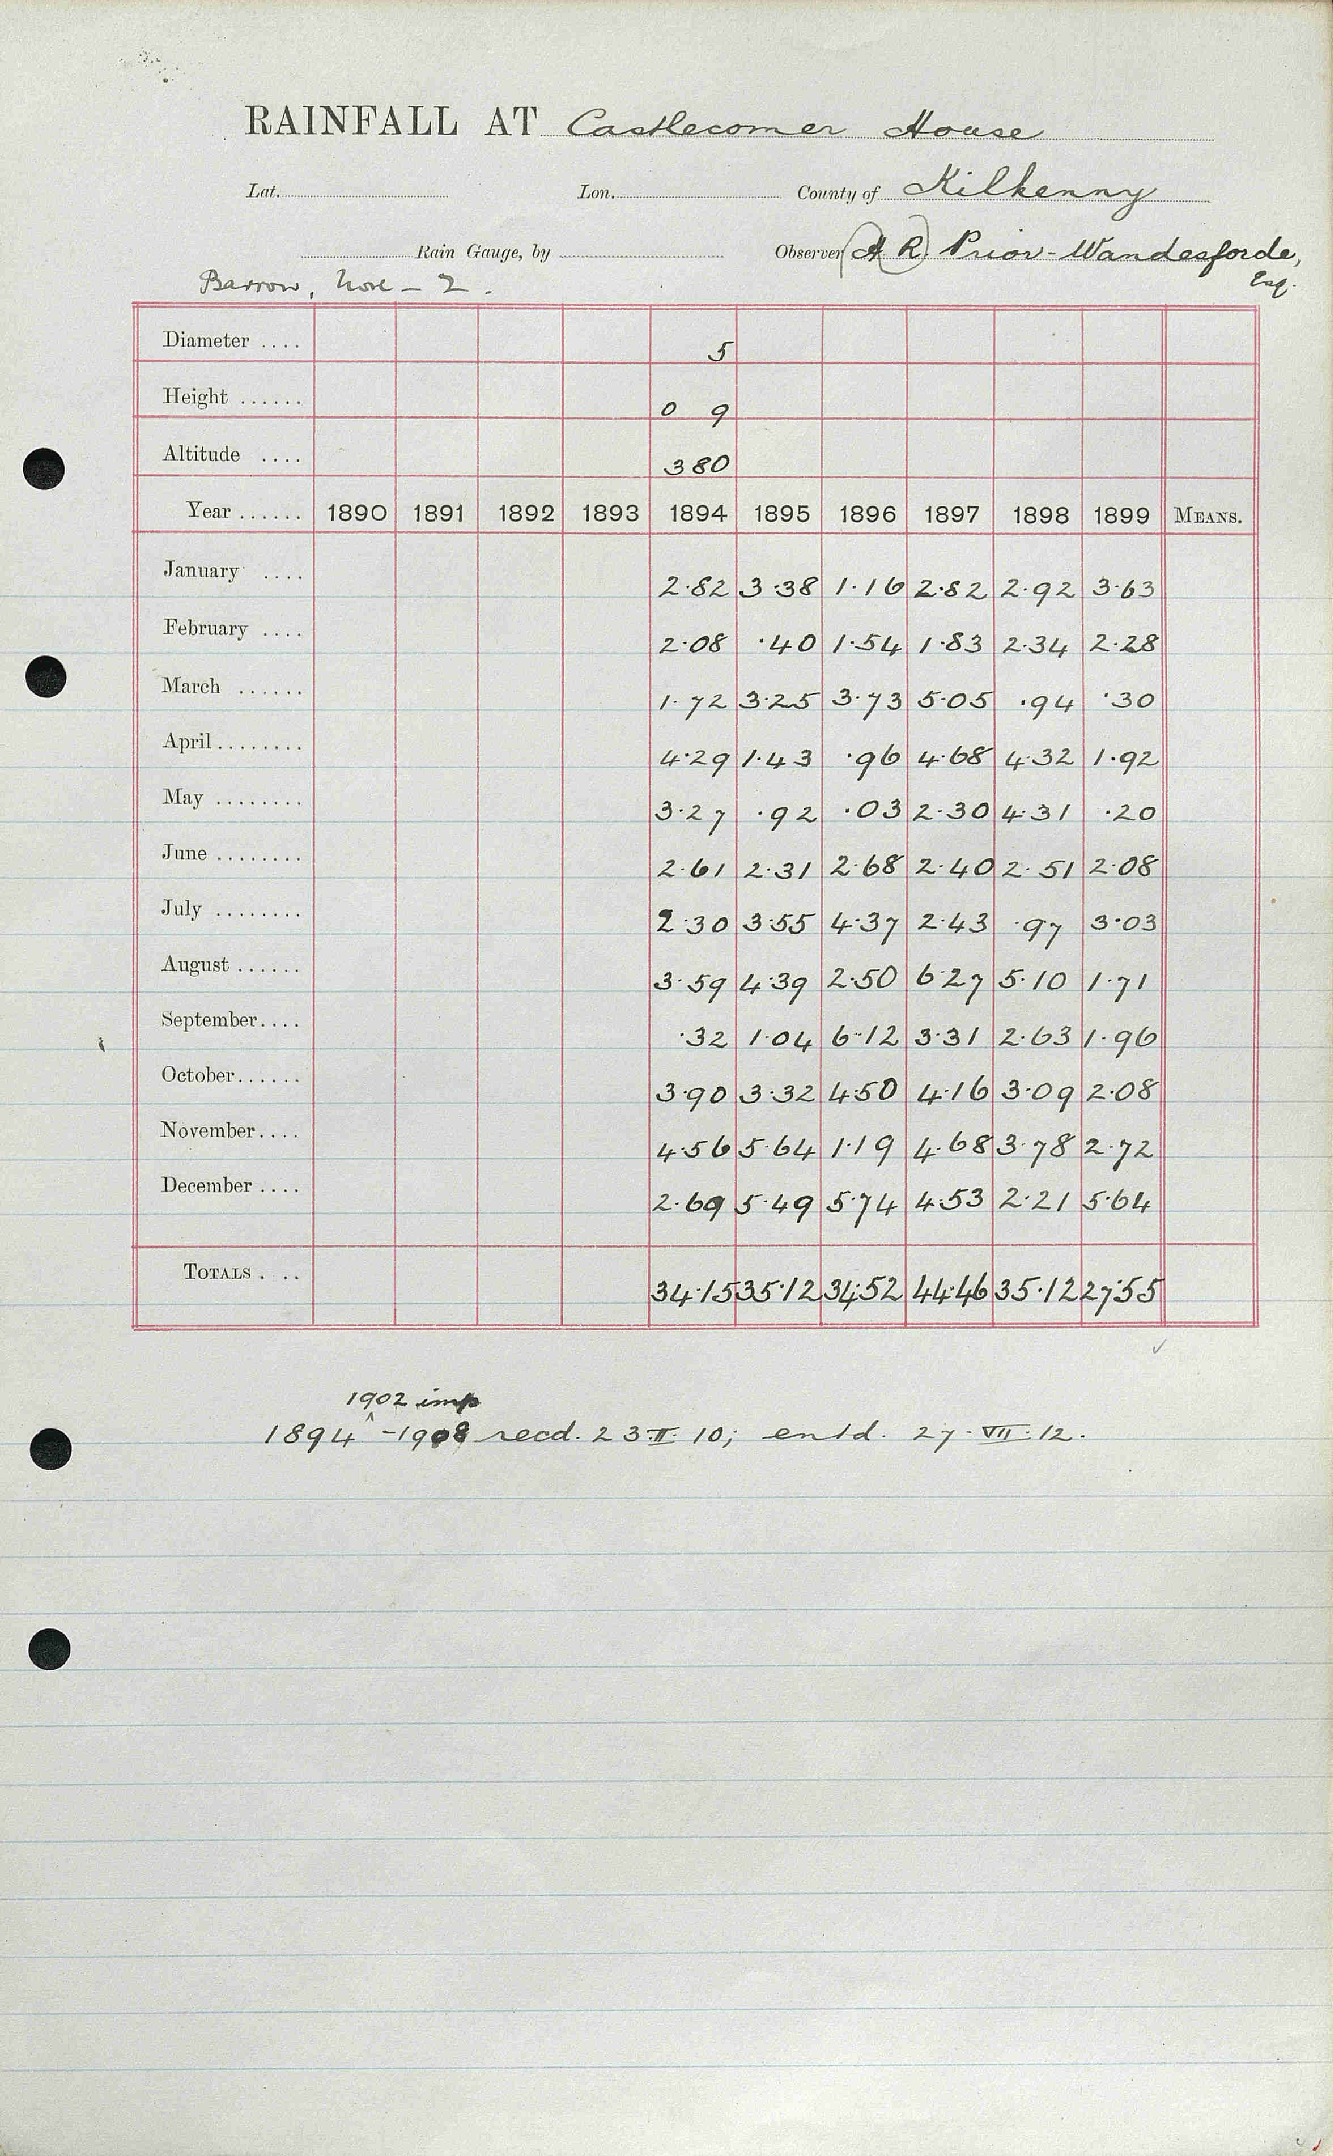 RAINFALL AT Castlecomer House
Lat. Lon. County of Kilkenny
Rain Gauge, by Observer (A R) Prior-Wandesforde,
Esq.
Barrow, Nore - 2.
Diameter .... 5
Height ...... 0 9
Altitude .... 380
Year ...... 1890 1891 1892 1893 1894 1895 1896 1897 1898 1899 MEANS.
January .... 2.82 3.38 1.16 2.82 2.92 3.63
February .... 2.08 .40 1.54 1.83 2.34 2.28
March ...... 1.72 3.25 3.73 5.05 .94 .30
April ........ 4.29 1.43 .96 4.68 4.32 1.92
May ........ 3.27 .92 .03 2.30 4.31 .20
June ........ 2.61 2.31 2.68 2.40 2.51 2.08
July ........ 2.30 3.55 4.37 2.43 .97 3.03
August ...... 3.59 4.39 2.50 6.27 5.10 1.71
September .... .32 1.04 6.12 3.31 2.63 1.96
October ...... 3.90 3.32 4.50 4.16 3.09 2.08
November .... 4.56 5.64 1.19 4.68 3.78 2.72
December .... 2.69 5.49 5.74 4.53 2.21 5.64
TOTALS . .. 34.15 35.12 34.52 44.46 35.12 27.55
1902 imp
1894 ^ -1908 recd. 23.II.10; entd. 27.VII.12.